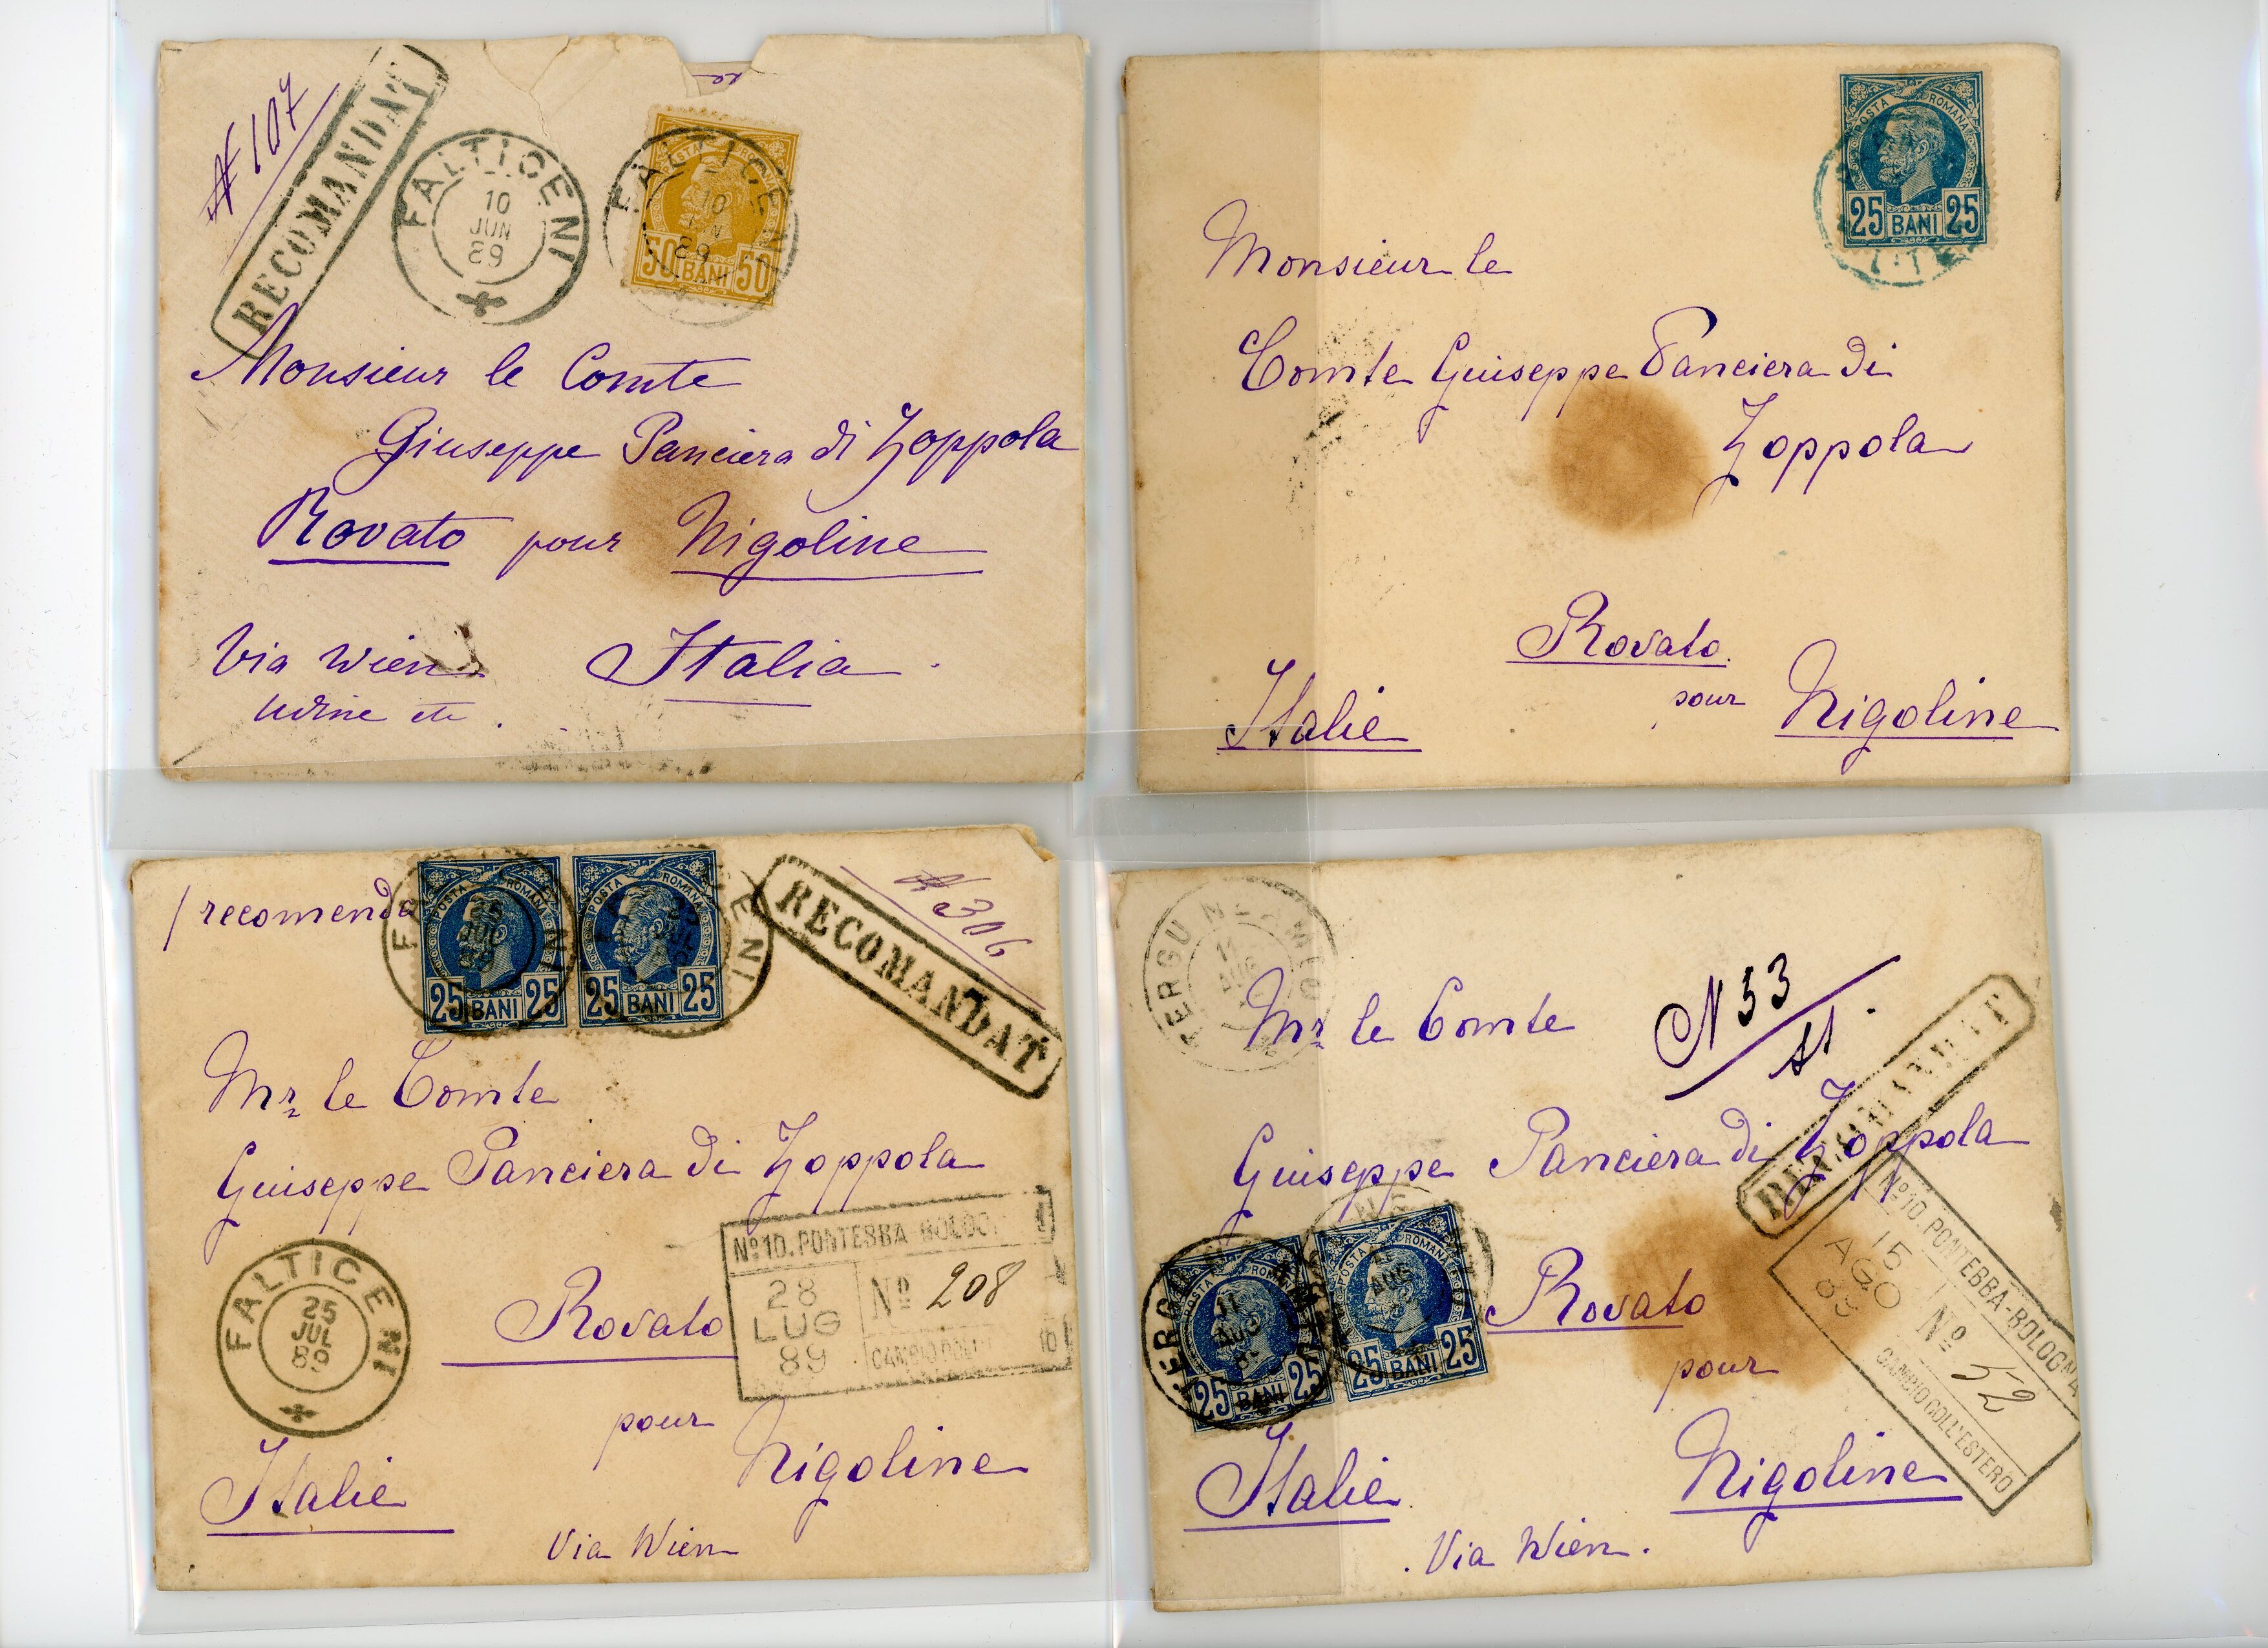 № 107
RECOMANDAT
FALTICENI
10
JUN
89
FALTICENI
10
JUN
89
POSTA ROMANA
50 BANI 50
Monsieur le Comte
Giuseppe Panciera di Zoppola
Rovato pour Nigoline
Via Wien Italia
Udine etc.
POSTA ROMANA
25 BANI 25
Monsieur le
Comte Guiseppe Panciera di
Zoppola
Rovato
pour Nigoline
Italie
recomenda
25
JUL
89
POSTA ROMANA
25 BANI 25
POSTA ROMANA
25 BANI 25
RECOMANDAT
№ 306
Mr le Comte
Guiseppe Panciera di Zoppola
Nº10. PONTEBBA-BOLOG
28
LUG
89
Nº 208
CAMBIO
FALTICENI
25
JUL
89
Rovato
pour Nigoline
Italie
Via Wien
TERGU NEAMTO
11
AUG
N 53
Mr le Comte
RECOMANDAT
Guiseppe Panciera di Zoppola
Nº10. PONTEBBA-BOLOGNA
15
AGO
89
Nº 52
CAMBIO COLL'ESTERO
11
AUG
POSTA ROMANA
25 BANI 25
POSTA ROMANA
25 BANI 25
Rovato
pour
Nigoline
Italie
Via Wien.